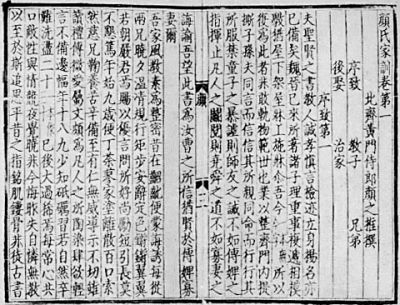 顔氏家訓卷第一
北齊黃門侍郎顔之推撰
序致 教子 兄弟
後娶 治家
序致第一
夫聖賢之書教人誠孝慎言檢迹立身揚名亦
已備矣魏晉已來所著諸子理重事複遞相模
斆猶屋下架屋牀上施牀爾吾今所以
復為此者非敢軌物範世也業以整齊門內提
撕子孫夫同言而信信其所親同命而行行其
所服禁童子之暴謔則師友之誡不如傅婢之
指揮止凡人之鬬鬩則堯舜之道不如寡妻之
顔
誨諭吾望此書為汝曹之所信猶賢於傅婢寡
妻爾
吾家風教素為整密昔在齠齔便蒙誨誘每從
兩兄曉夕溫凊規行矩步安辭定色鏘鏘翼翼
若朝嚴君焉賜以優言問所好尚勵短引長莫
不懇篤年始九歲便丁荼蓼家塗離散百口索
然慈兄鞠養苦辛備至有仁無威導示不切雖
讀禮傳微愛屬文頗為凡人之所陶染肆欲輕
言不備邊幅年十八九少知砥礪習若自然卒
難洗盪二十已後大過稀焉每常心共
口敵性與情競夜覺曉非今悔昨失自憐無教
以至於斯追思平昔之指銘肌鏤骨非徒古書